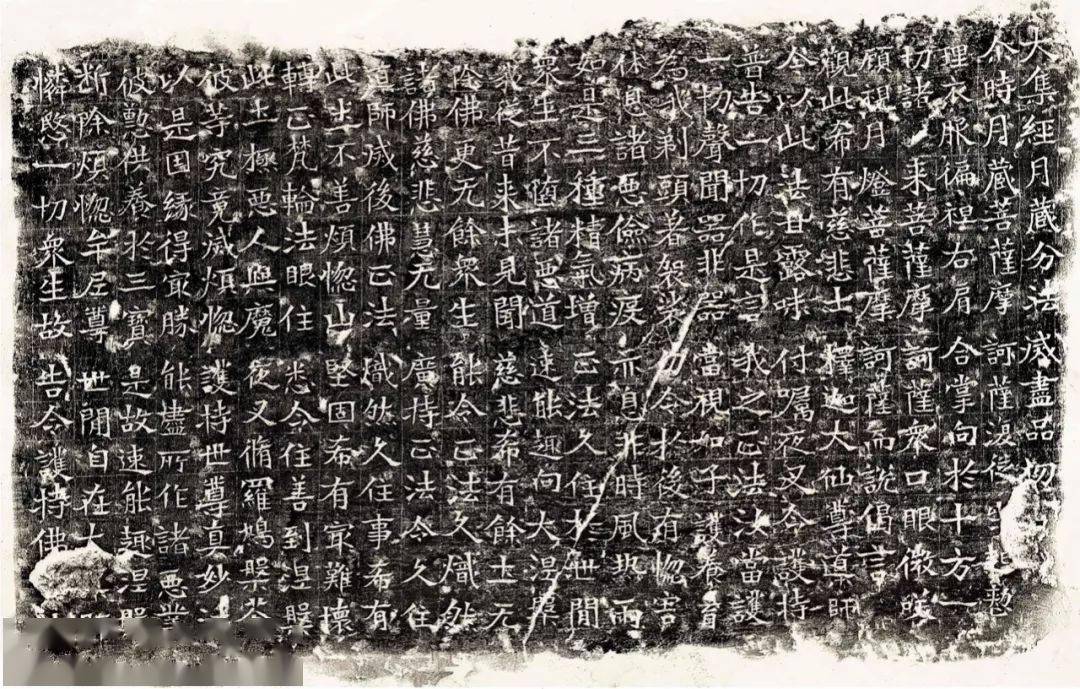 大集經月藏分法滅盡品初
尒時月藏菩薩摩訶薩
理衣服偏袒右肩合掌向於十方一
切諸来菩薩摩訶薩衆口眼微咲
顧視月燈菩薩摩訶薩而說偈言
觀此希有慈悲士釋迦大仙尊導師
今以此法甘露味付嘱夜叉令護持
普告一切作是言我之正法汝當護
一切聲聞器非器當視如子護養育
為我剃頭著袈裟勿令於後有惱害
休息諸惡儉病疫亦息非時風熱雨
如是三種精氣增正法久住於世間
衆生不墮諸惡道速能趣向大涅槃
我從昔来未見聞慈悲希有餘土无
除佛更无餘衆生能令正法久熾然
諸佛慈悲慧无量廣持正法令久住
真師滅後佛正法熾然久住事希有
此土不善煩惱山堅固希有冣難壞
轉正梵輪法眼住悉令住善到涅槃
此土極惡人與魔夜叉脩羅鳩槃荼
彼等究竟滅煩惱護持世尊真妙法
以是因縁得冣勝能盡所作諸惡業
彼懃供養於三寶是故速能趣涅槃
斷除煩惱牟尼尊世間自在大
憐愍一切衆生故告令護持佛